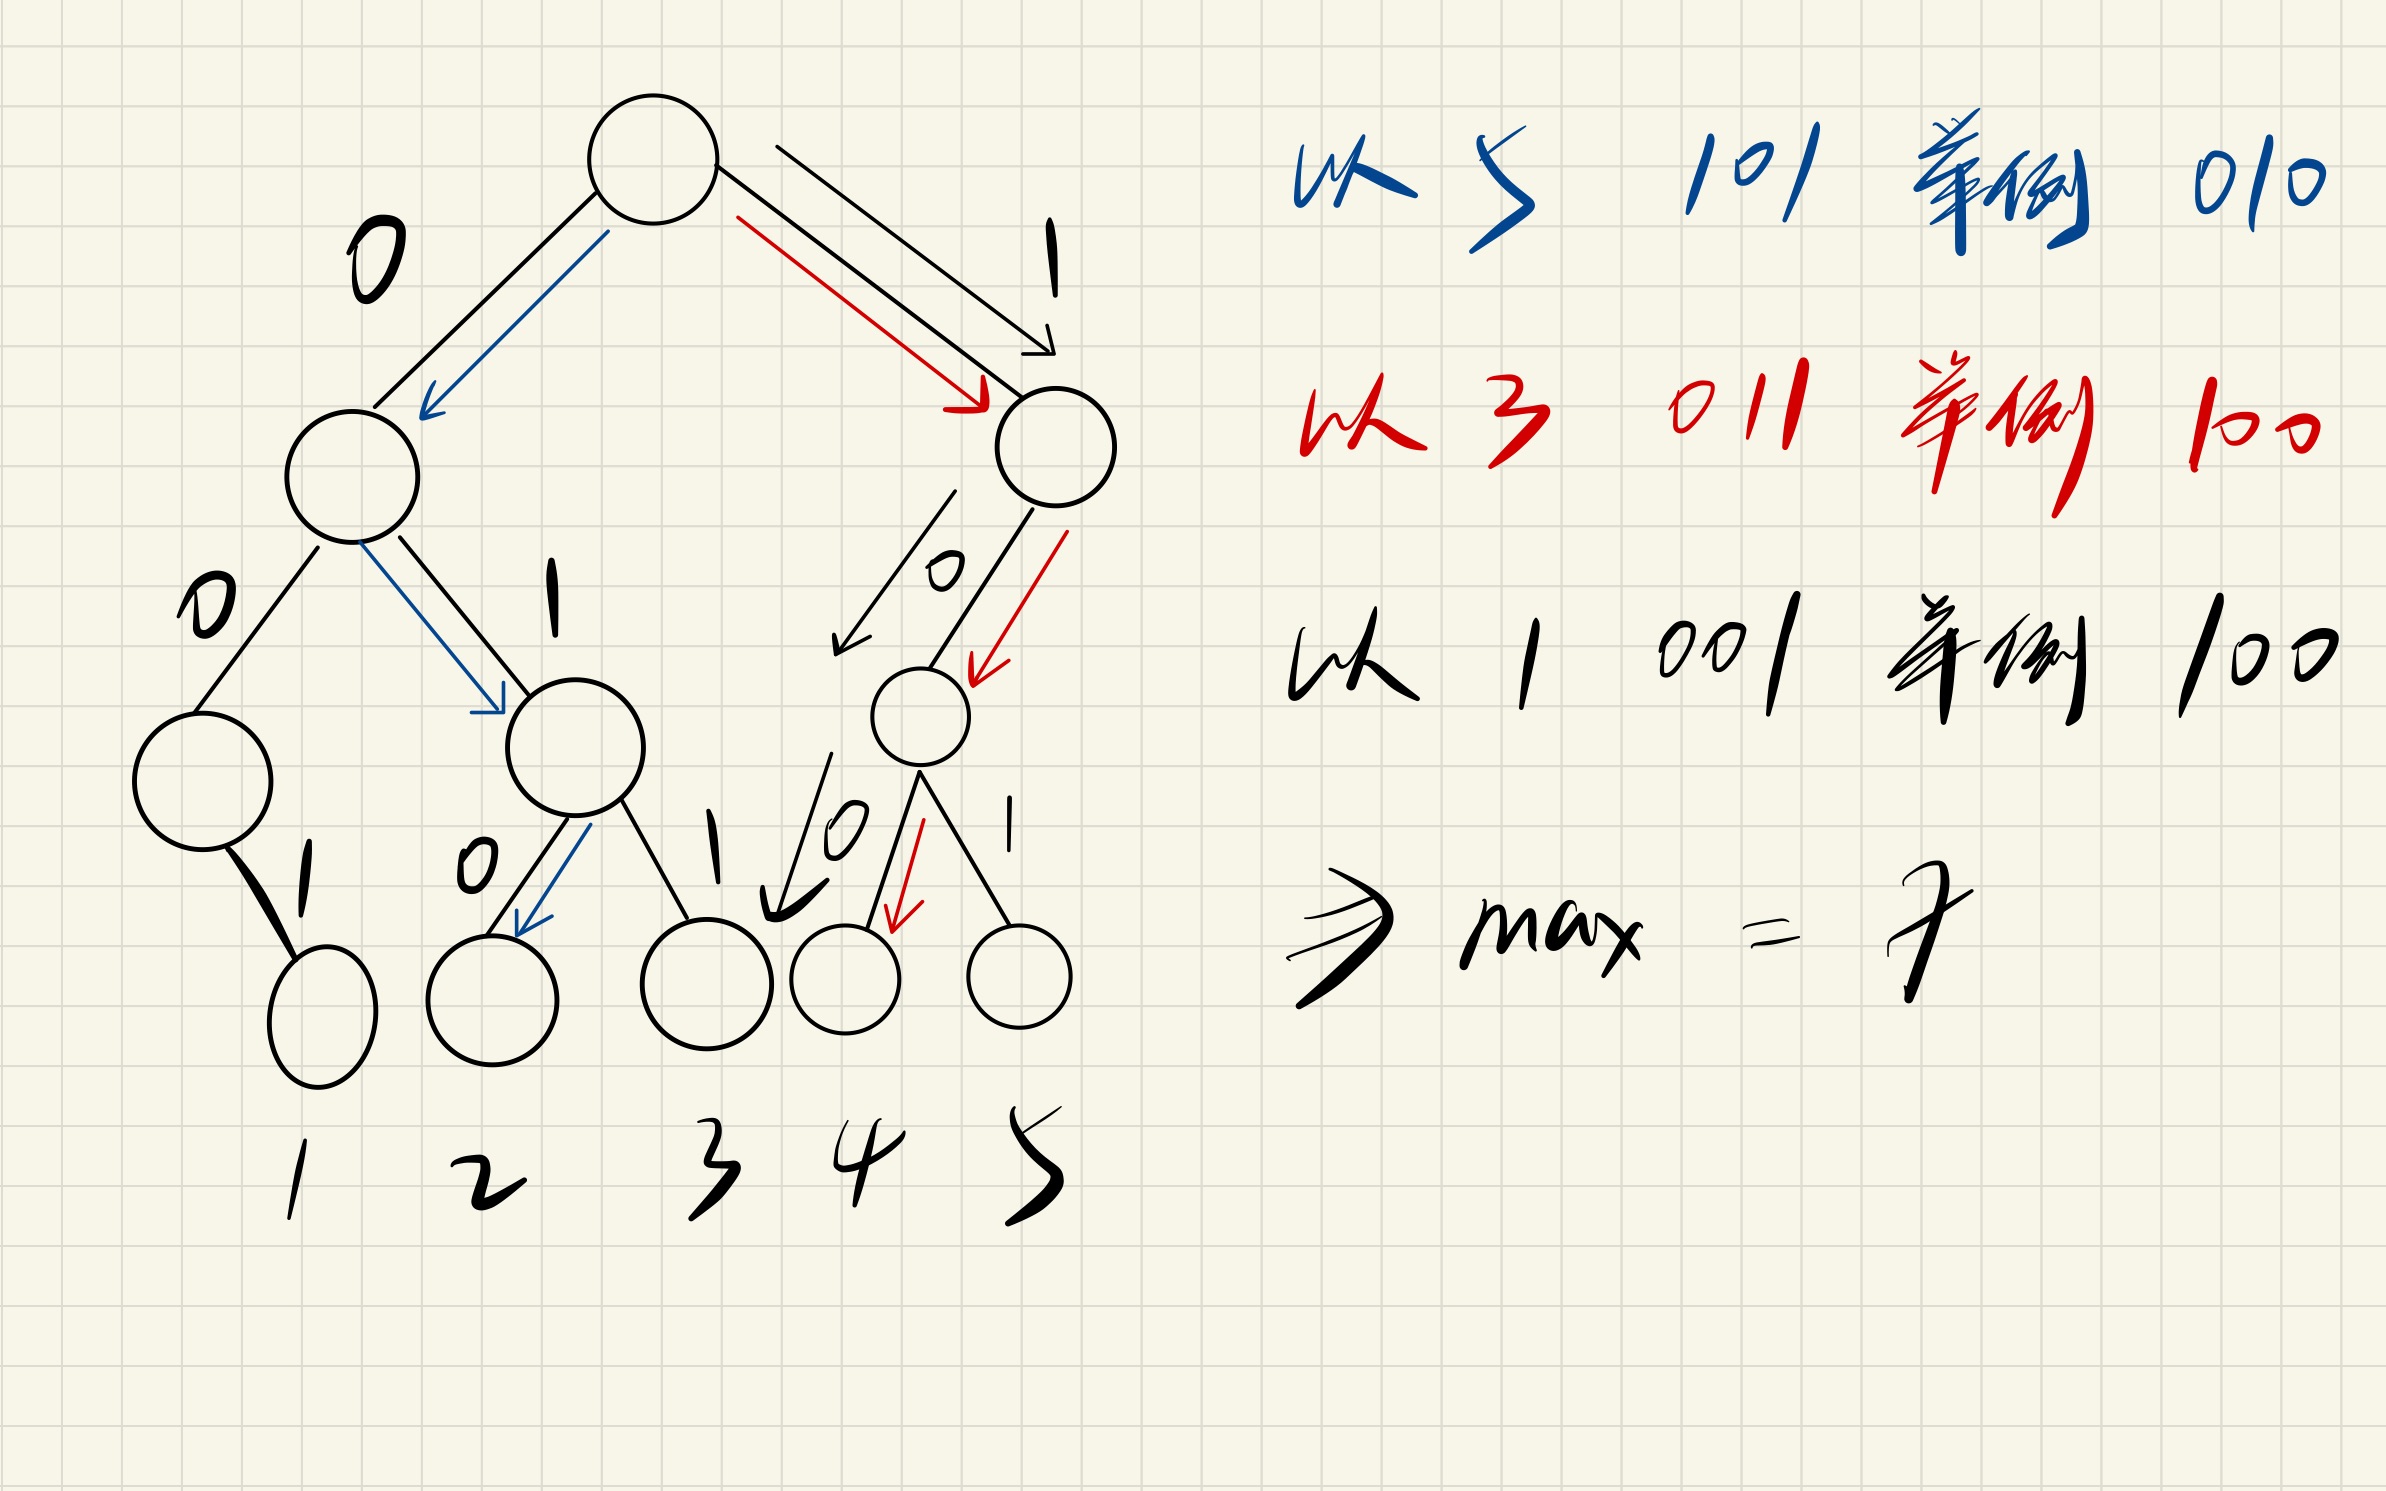 0 1
0 1 0
1 0 1 0 1
1 2 3 4 5
以 5 101 举例 010
以 3 011 举例 100
以 1 001 举例 100
⇒ max = 7